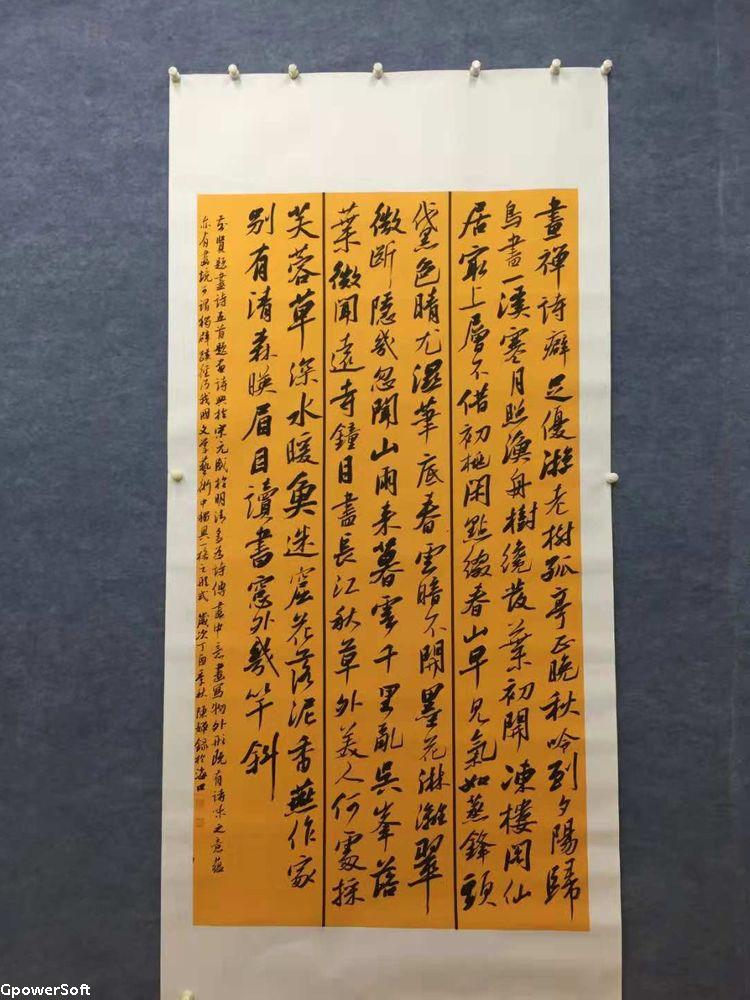 畫禪詩癖足優游老樹孤亭正晚秋吟到夕陽歸
鳥盡一溪寒月照漁舟樹繞葉初開凍樓閣仙
居最上層不借初桃閑點綴春山早見氣如蒸鋒頭
黛色晴尤濕華底春雲暗不開墨花淋灕翠
微斷隱幾忽聞山雨來暮雲千里亂吳峯落
葉微聞遠寺鐘目盡長江秋草外美人何處採
芙蓉草深水暖魚迷窟花落泥香燕作家
別有清森映眉目讀書窓外幾竿斜
前賢題畫詩五首題畫詩興於宋元盛於明清多為詩傳畫中意畫寫物外形既有詩味之意蘊
亦有畫境可謂獨辟蹊徑乃我國文學藝術中獨具一格之形式 歲次丁酉季秋陳錄於海口
GpowerSoft